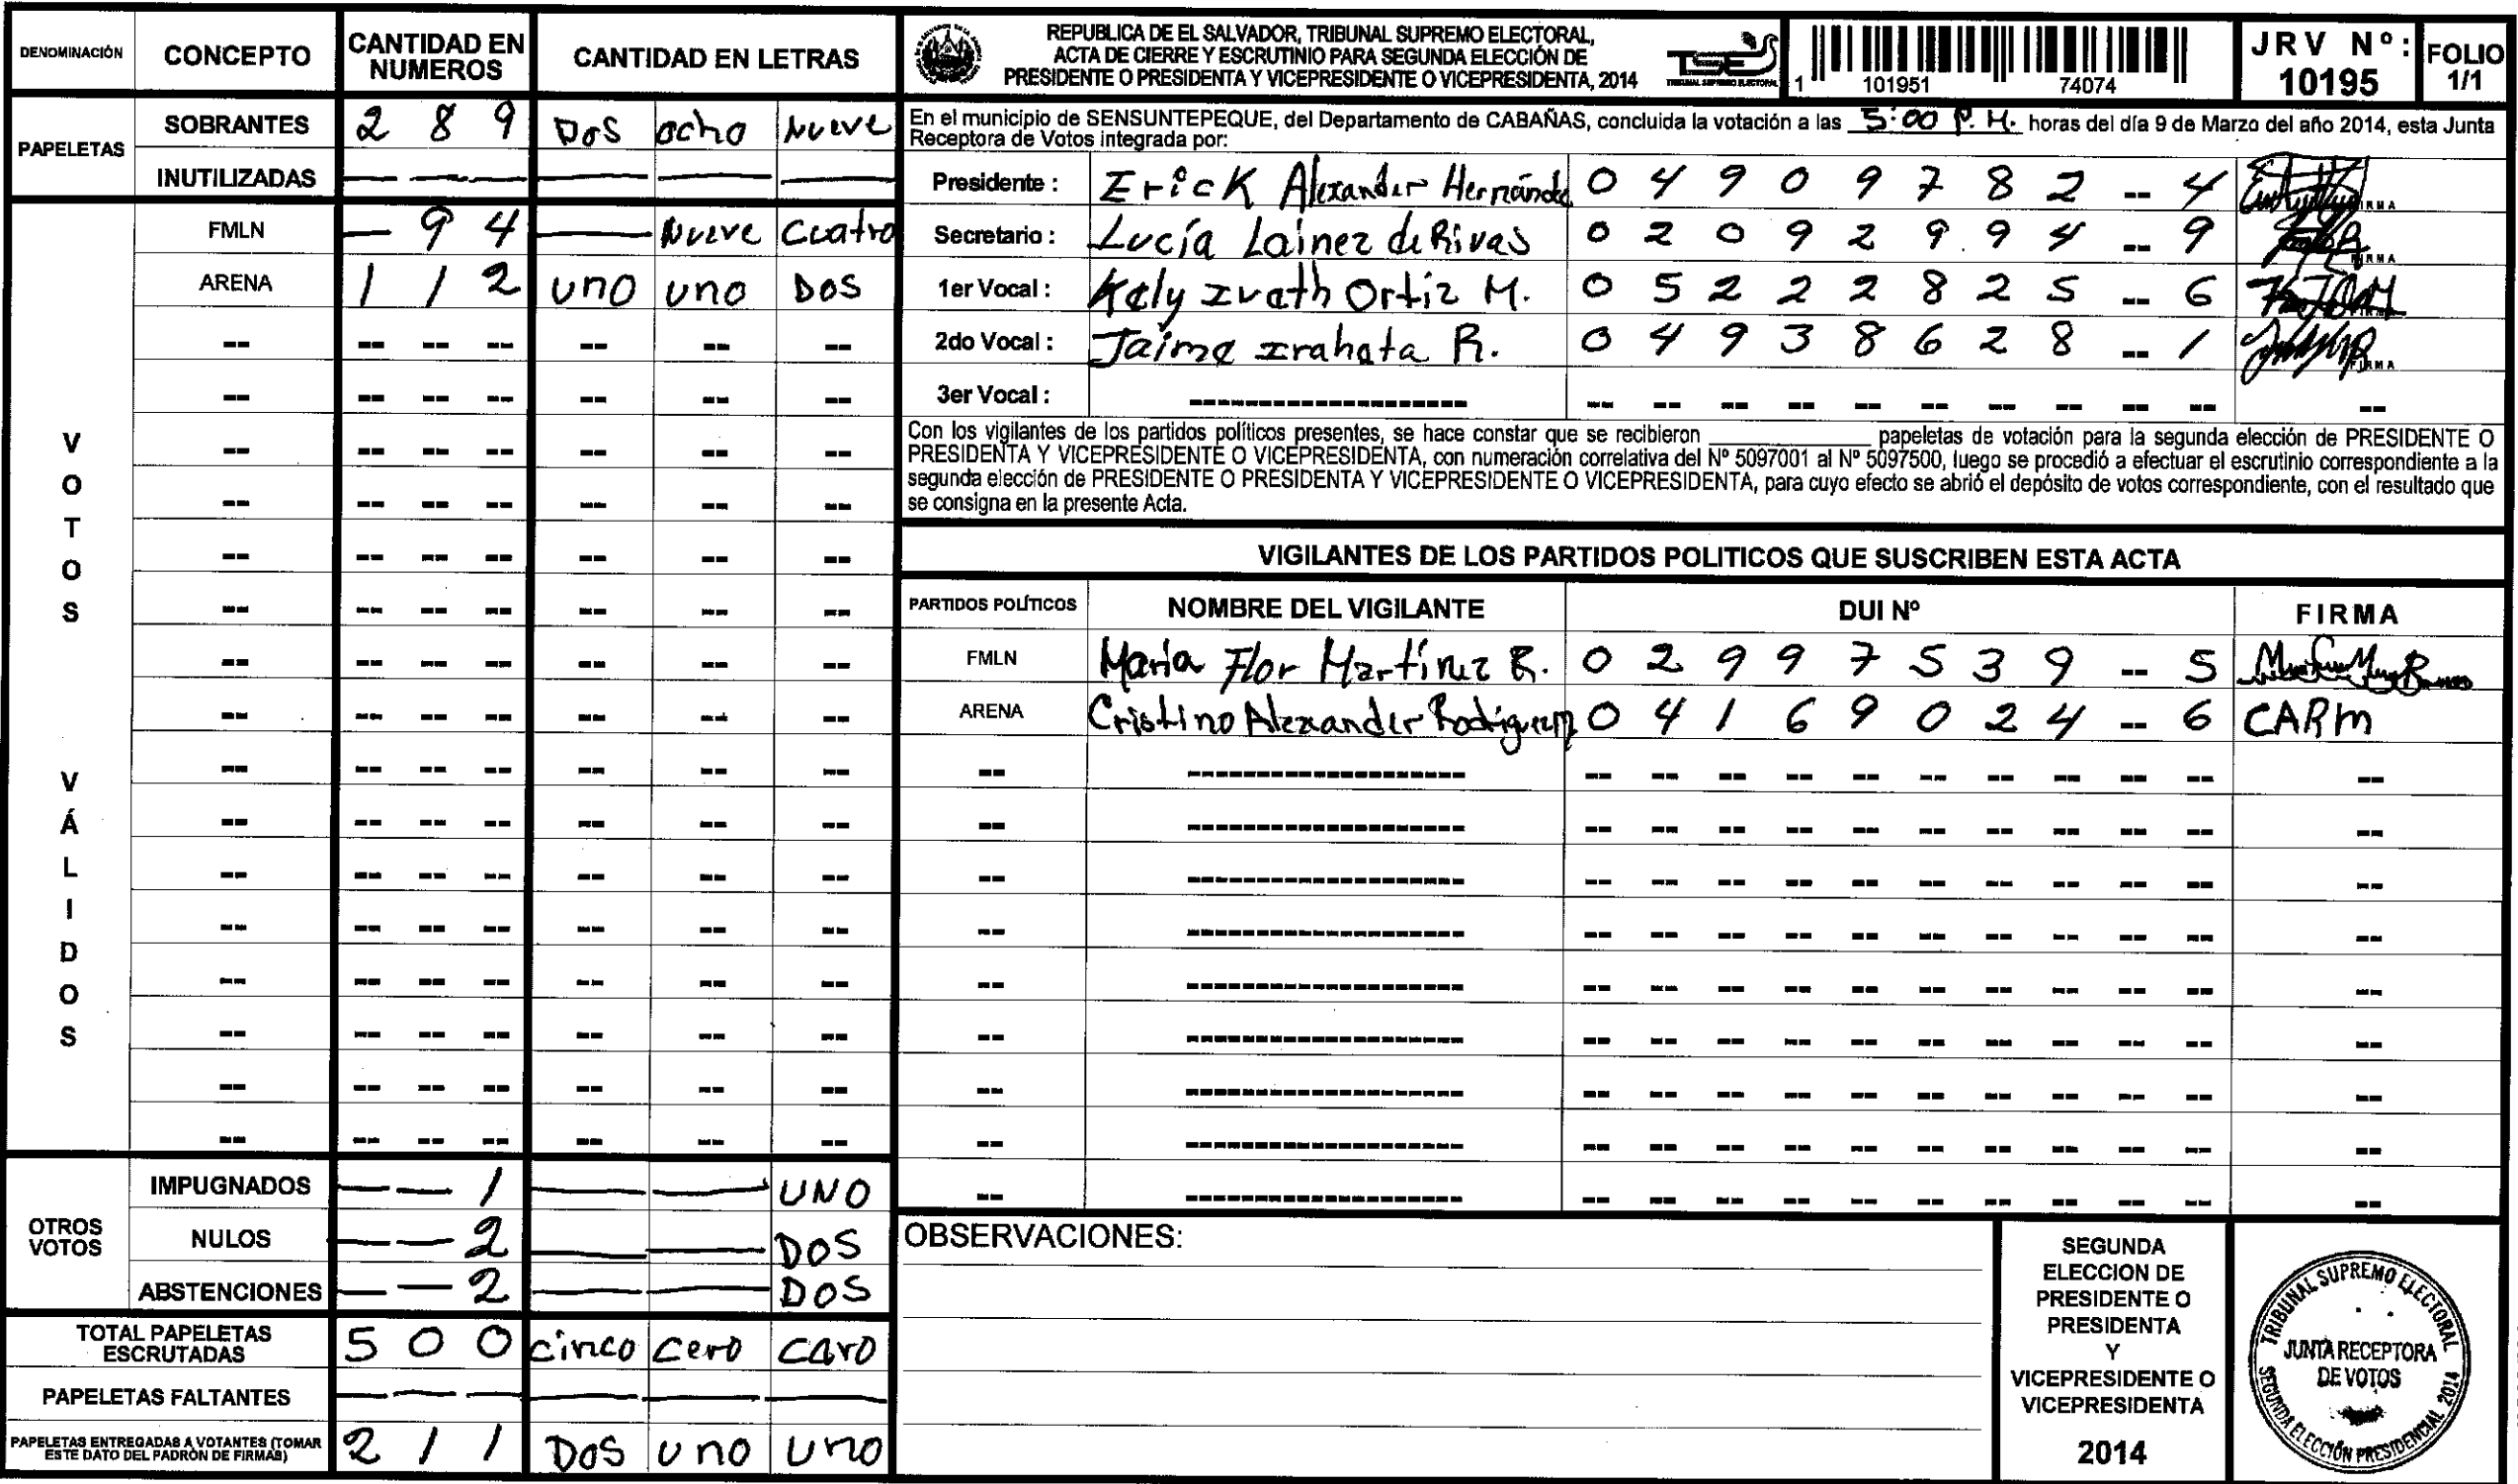 DENOMINACIÓN CONCEPTO CANTIDAD EN NUMEROS CANTIDAD EN LETRAS
PAPELETAS
SOBRANTES 2 8 9 DOS ocho NUEVE
INUTILIZADAS — — — — — —
VOTOS VÁLIDOS
FMLN — 9 4 — NUEVE Cuatro
ARENA 1 1 2 uno uno DOS
OTROS VOTOS
IMPUGNADOS — — 1 — — UNO
NULOS — — 2 — — DOS
ABSTENCIONES — — 2 — — DOS
TOTAL PAPELETAS ESCRUTADAS 5 0 0 cinco cero caro
PAPELETAS FALTANTES — — — — — —
PAPELETAS ENTREGADAS A VOTANTES (TOMAR ESTE DATO DEL PADRÓN DE FIRMAS) 2 1 1 DOS uno uno
REPUBLICA DE EL SALVADOR, TRIBUNAL SUPREMO ELECTORAL,
ACTA DE CIERRE Y ESCRUTINIO PARA SEGUNDA ELECCIÓN DE
PRESIDENTE O PRESIDENTA Y VICEPRESIDENTE O VICEPRESIDENTA, 2014
TSE
TRIBUNAL SUPREMO ELECTORAL
1 101951 74074
JRV Nº: 10195
FOLIO 1/1
En el municipio de SENSUNTEPEQUE, del Departamento de CABAÑAS, concluida la votación a las 5:00 P.M. horas del día 9 de Marzo del año 2014, esta Junta
Receptora de Votos integrada por:
Presidente : Erick Alexander Hernánde 0 4 9 0 9 7 8 2 -- 4
Secretario : Lucía Lainez de Rivas 0 2 0 9 2 9 9 4 -- 9
1er Vocal : Kely Ivath Ortiz M. 0 5 2 2 2 8 2 5 -- 6
2do Vocal : Jaime Iraheta R. 0 4 9 3 8 6 2 8 -- 1
3er Vocal :
Con los vigilantes de los partidos políticos presentes, se hace constar que se recibieron ________ papeletas de votación para la segunda elección de PRESIDENTE O
PRESIDENTA Y VICEPRESIDENTE O VICEPRESIDENTA, con numeración correlativa del Nº 5097001 al Nº 5097500, luego se procedió a efectuar el escrutinio correspondiente a la
segunda elección de PRESIDENTE O PRESIDENTA Y VICEPRESIDENTE O VICEPRESIDENTA, para cuyo efecto se abrió el depósito de votos correspondiente, con el resultado que
se consigna en la presente Acta.
VIGILANTES DE LOS PARTIDOS POLITICOS QUE SUSCRIBEN ESTA ACTA
PARTIDOS POLÍTICOS NOMBRE DEL VIGILANTE DUI Nº FIRMA
FMLN Maria Flor Martínez R. 0 2 9 9 7 5 3 9 -- 5
ARENA Cristino Alexander Rodriguez 0 4 1 6 9 0 2 4 -- 6 CARM
OBSERVACIONES:
SEGUNDA
ELECCION DE
PRESIDENTE O
PRESIDENTA
Y
VICEPRESIDENTE O
VICEPRESIDENTA
2014
TRIBUNAL SUPREMO ELECTORAL
JUNTA RECEPTORA
DE VOTOS
SEGUNDA ELECCIÓN PRESIDENCIAL 2014